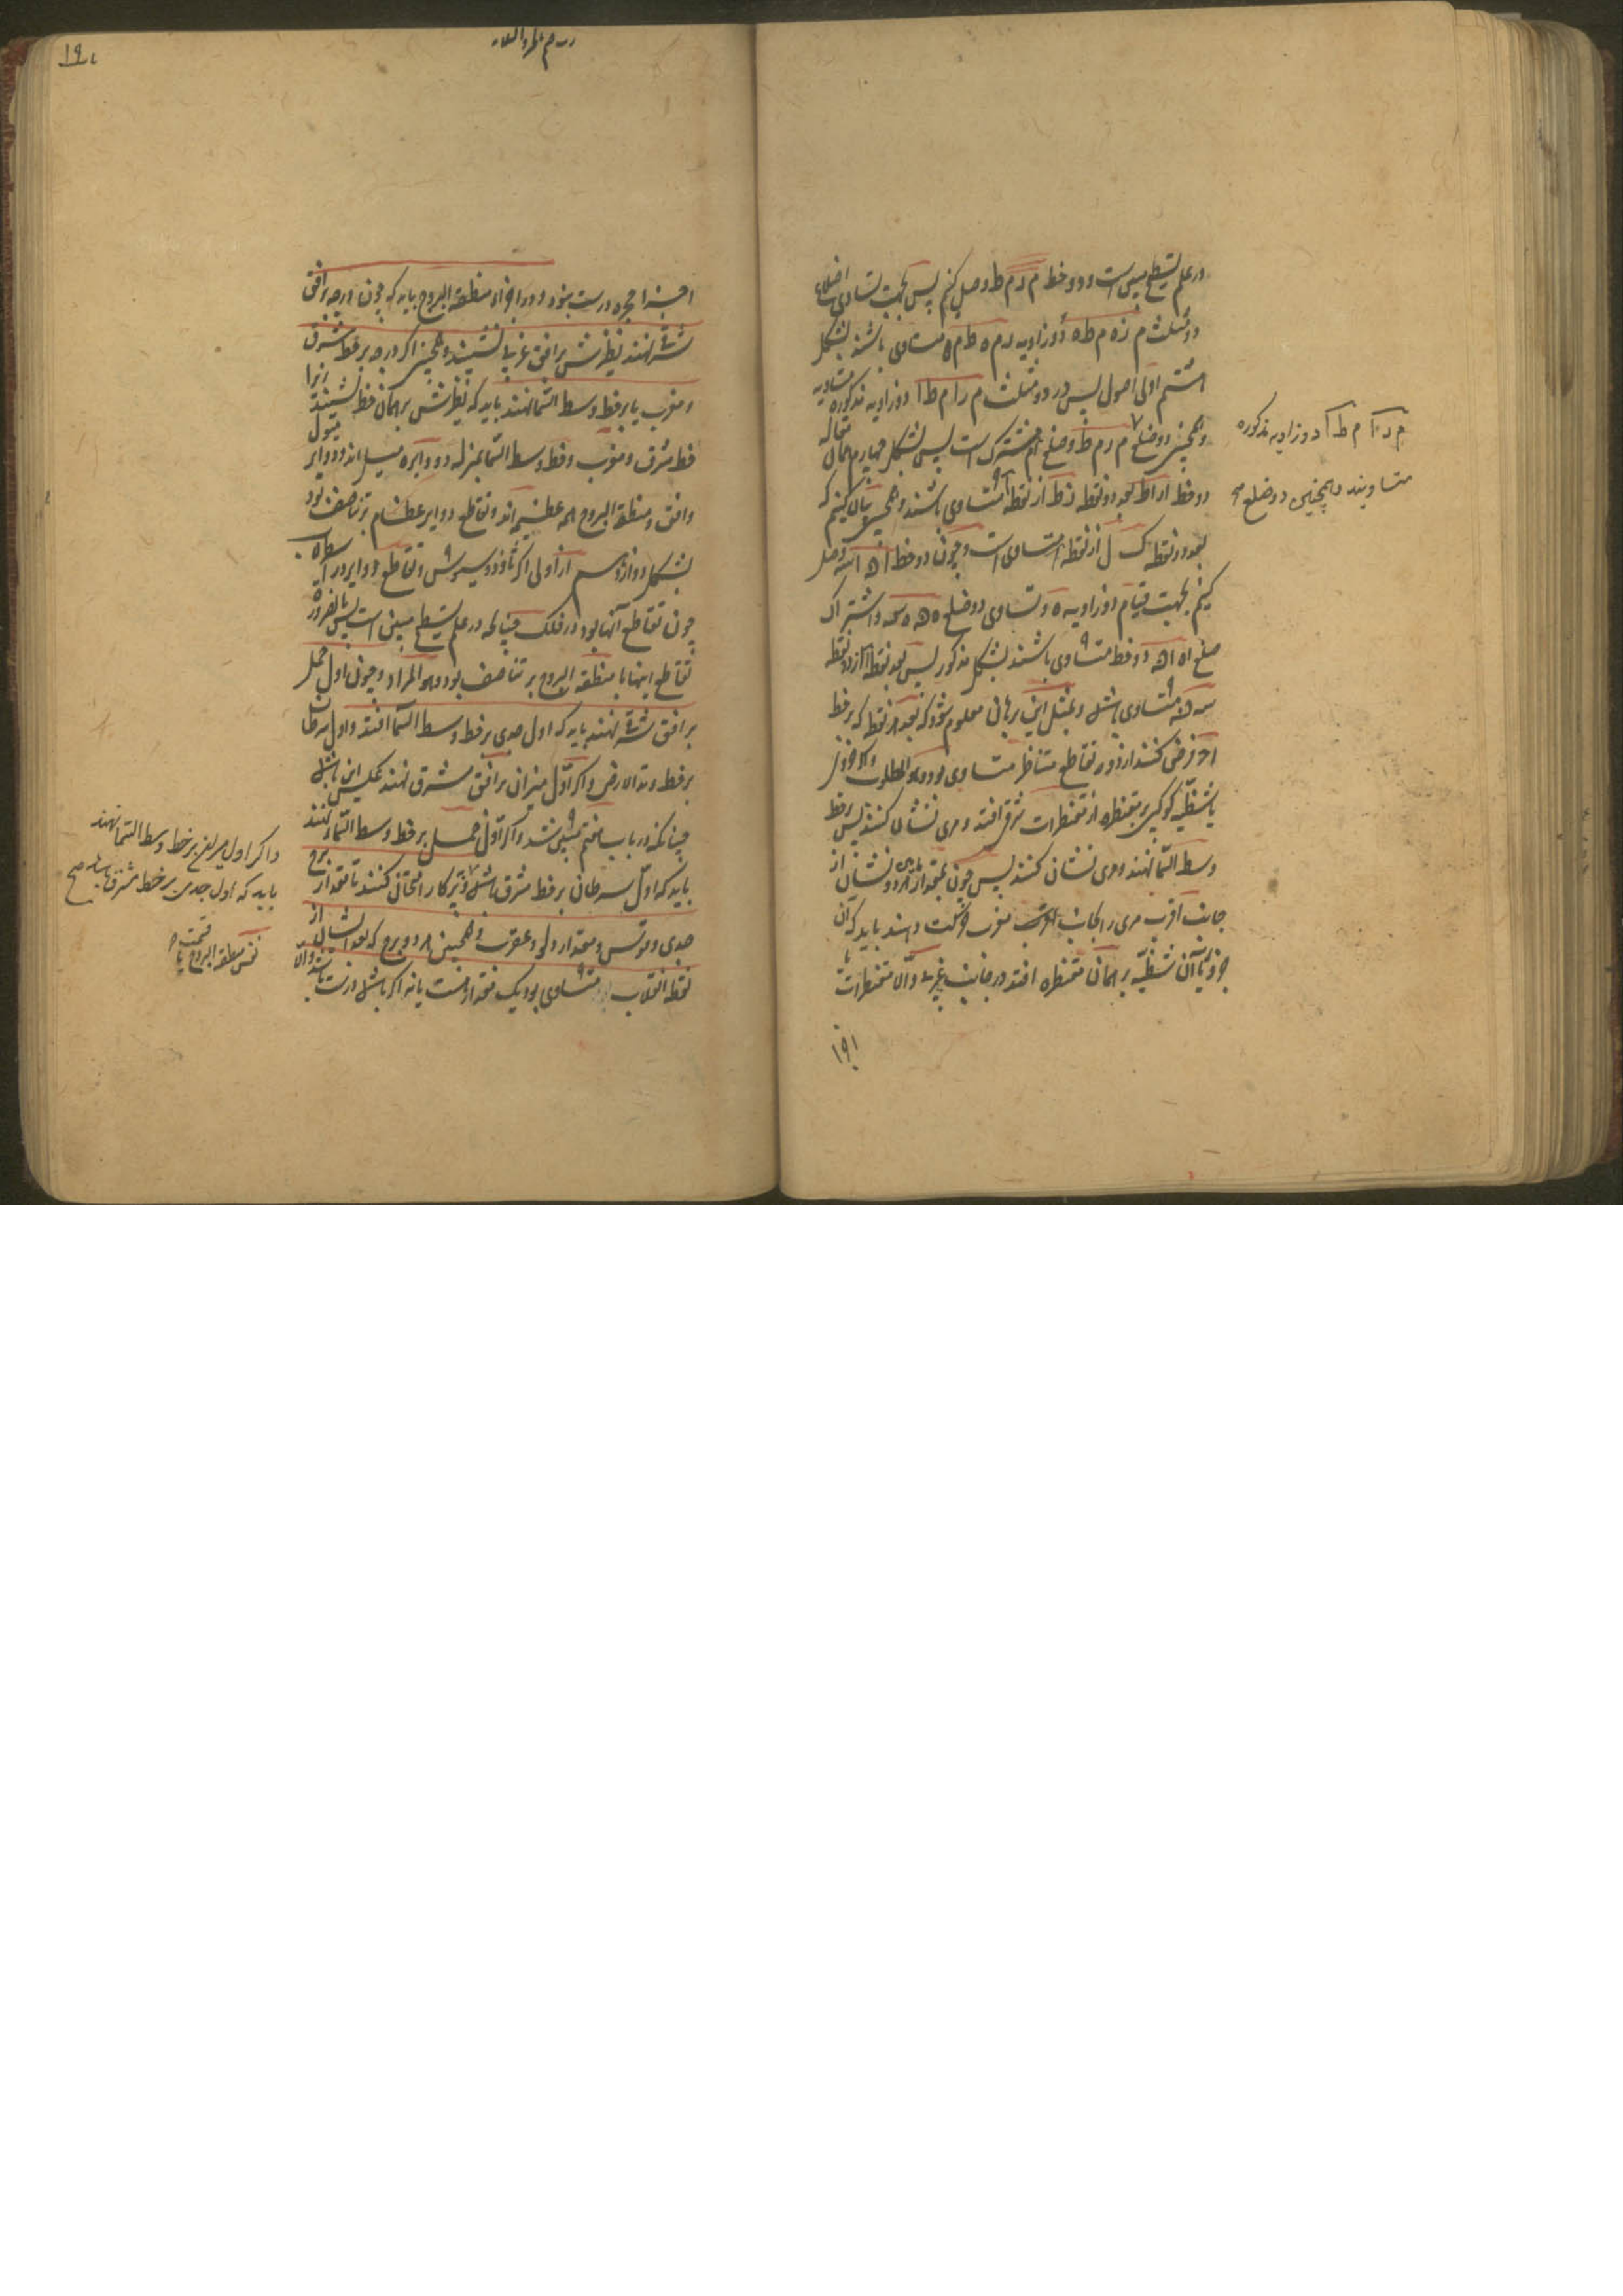 در علم تسطیح مبین است و دو خط م ر م ط وصل کنیم پس بجهت تساوی اضلاع
دو مثلث م ز ه م ط ه دو زاویه ر م ه ط م ه متساوی باشند بشکل
هشتم اولی اصول پس در دو مثلث م ر ا م ط ا دو زاویه مذکوره متساویه
و همچنین دو ضلع م ر م ط و ضلع ام مشترک است پس بشکل چهارم همان مقاله
دو خط ار اط بعد دو نقطه ز ط از نقطه ا متساوی باشند و همچنین بیان کنیم که
بعد دو نقطه ک ل از نقطه ا متساوی است و چون دو خط وصل
کنیم بجهت قیام دو زاویه ه و تساوی دو ضلع و اشتراک
ضلع اه دو خط متساوی باشند بشکل مذکور پس بعد نقطه ا از دو نقطه
متساوی باشد و بمثل این برهان معلوم شود که بعد هر نقطه که بر خط
فرض کنند از دو تقاطع متناظر متساوی بود و هو المطلوب
یا شظیه کوکبی بر مقنطره از مقنطرات شرقی افتد و مری نشان کنند پس بر خط
وسط السما نهند و مری نشان کنند پس چون بمقدار دو نشان از
جانب اقرب مری را بجانب مغرب حرکت دهند باید که آن
جزو یا آن شظیه بر همان مقنطره افتد در جانب غربی و الا مقنطرات
م ر ا م ط ا دو زاویه مذکوره
متساویند و همچنین دو ضلع صح
۱۹۱
۱۹۲
اجزا حجره درست بود و در اجزاء منطقة البروج باید که چون درجه بر افق
شرقی نهند نظیرش بر افق غربی نشیند و همچنین اگر درجه بر خط مشرق
و مغرب یا بر خط وسط السما نهند باید که نظیرش بر همان خط نشیند زیرا
خط مشرق و مغرب و خط وسط السما بمنزله دو دایره میل اند و دوایر میول
و افق و منطقة البروج همه عظیمه اند و تقاطع دوایر عظام بر تناصف بود
بشکل دوازدهم از اولی اکر ثاوذوسیوس و تقاطع دوایر در اسطرلاب
چون تقاطع آنها بود در فلک چنانکه در علم تسطیح مبین است پس بالضروره
تقاطع اینها با منطقة البروج بر تناصف بود و هو المراد و چون اول حمل
بر افق شرقی نهند باید که اول جدی بر خط وسط السما افتد و اول سرطان
بر خط وتد الارض و اگر اول میزان بر افق مشرق نهند بعکس این باشد
چنانکه در باب هفتم مبین شد و اگر اول حمل بر خط وسط السما نهند
باید که اول سرطان بر خط مشرق باشد و بپرکار امتحان کنند تا مقدار برج
جدی و قوس و مقدار دلو و عقرب و همچنین هر دو برج که بعد ایشان از
نقطه انقلاب متساوی بود یک مقدار هست یا نه اگر باشد درست باشد و الا
و اگر اول میزان بر خط وسط السما نهند
باید که اول جدی بر خط مشرق باشد صح
قسمت
نفس منطقة البروج یا